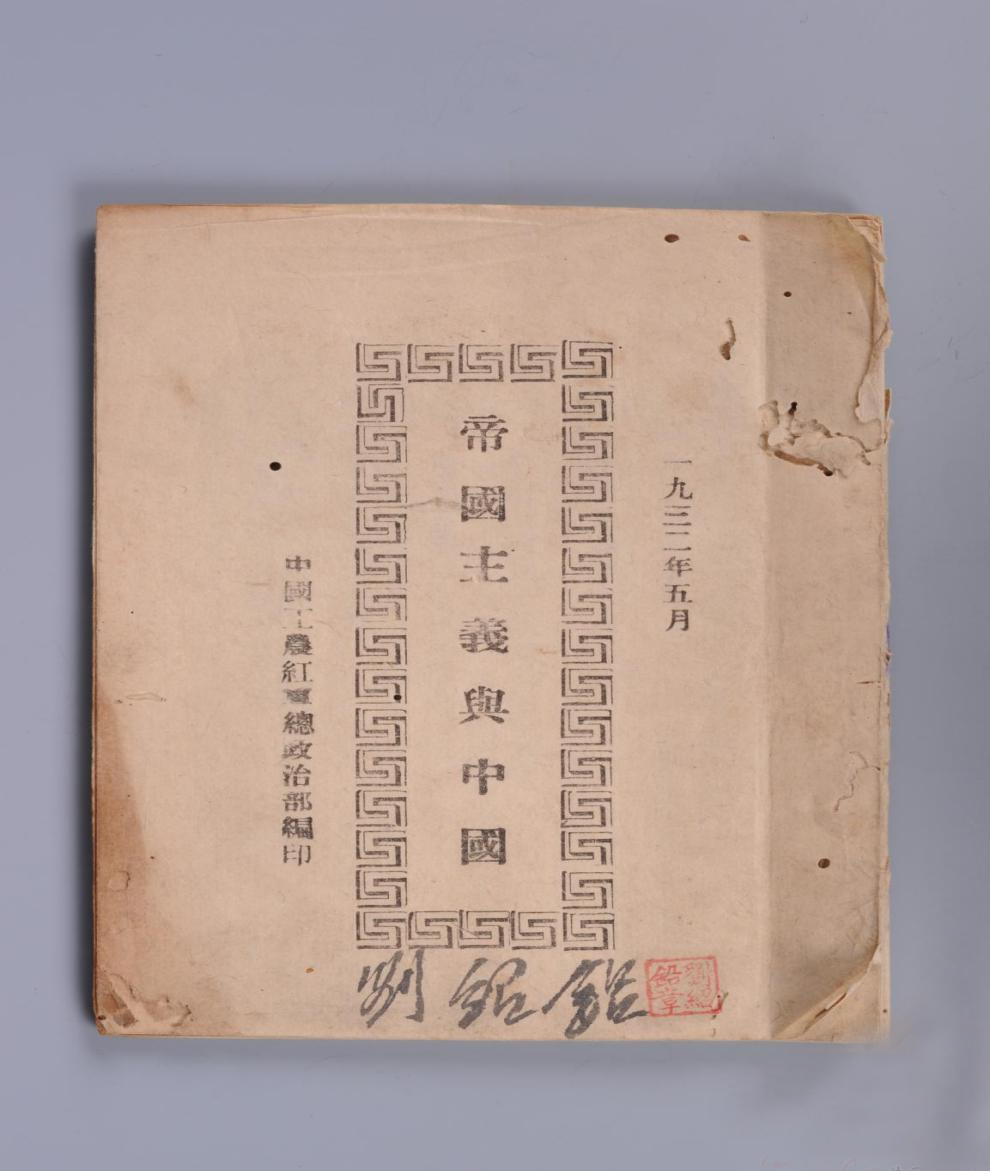 一九三二年五月
帝國主義與中國
中國工農紅軍總政治部編印
鉛章